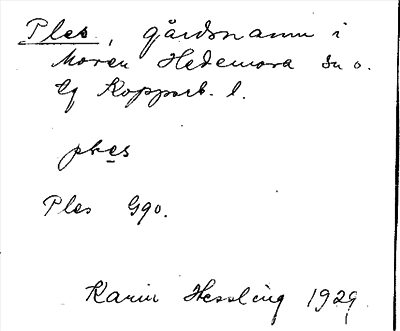 Ples, gårdsnamn i
Moren Hedemora sn o.
tg Kopparb. l.
ples
Ples G90.
Karin Hessling 1929